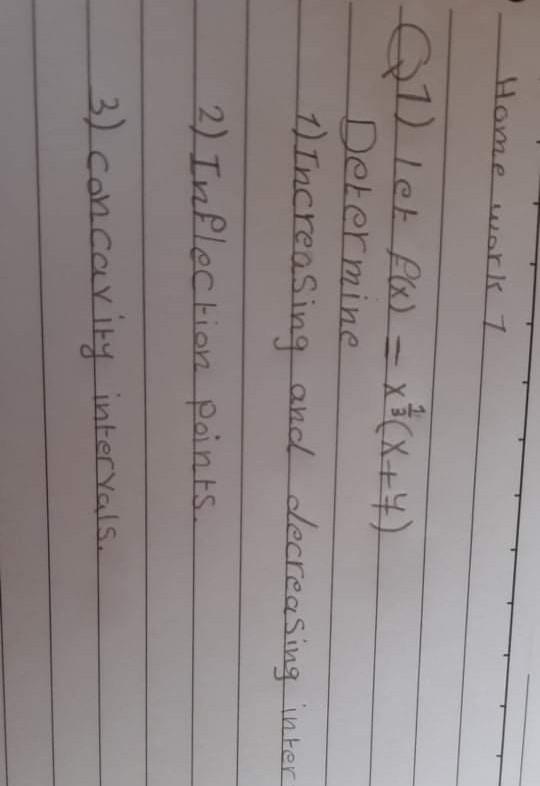 Home work 1
Q1) let f(x) = x^{1/3}(x+4)
Determine
1) Increasing and decreasing inter
2) Inflection points.
3) concavity intervals.